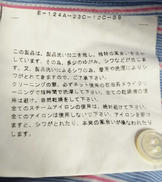 E-124A-23C-12C-38
この製品は、製品洗い加工を施し、独特の風合いを出
しています。その為、多少のゆがみ、シワなどが出ま
す。又、製品洗いによるシワの為、着用や洗濯によりシワ
がとれてきますので、ご了承下さい。
クリーニングの際、必ずネット使用の石油系ドライクリ
ーニングで短時間で洗濯して下さい。全ての乾燥機の使
用は避け、自然乾燥をして下さい。
全てのスチームアイロンの使用は、絶対避けて下さい。
全てのアイロンは使用しないで下さい。アイロンを掛け
ますと、シワがとれたり、本来の風合いが損なわれたり
します。